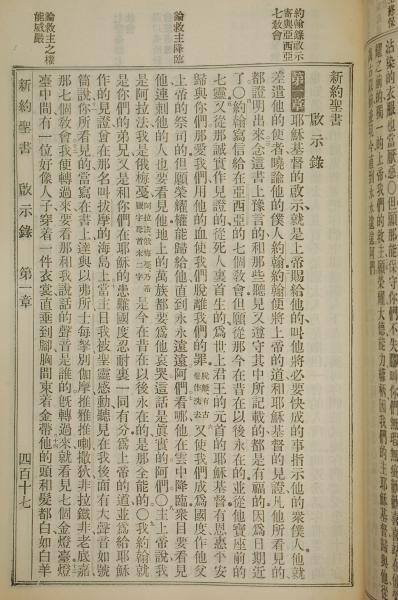 新約聖書
啟示錄
第一章 耶穌基督的啟示就是上帝賜給他的叫他將必要快成的事指示他的衆僕人他就
差遣他的使者曉諭他的僕人約翰約翰便將上帝的道和耶穌基督的見證凡他所看見的
都證明出來念這書上豫言的和那些聽見又遵守其中所記載的都是有福的因爲日期近
了○約翰寫信給在亞西亞的七個敎會但願從那今在昔在以後永在的並從他寶座前的
七靈又從那誠實作見證的從死人裏首生的爲世上君王的元首的耶穌基督有恩惠平安
歸與你們那愛我們用他的血使我們脫離我們的罪脫離有古卷作洗去又使我們成爲國度作他父
上帝的祭司的但願榮耀權能歸給他直到永永遠遠阿們看哪他在雲中降臨衆目要看見
他連刺他的人也要看見他地上的萬族都要爲他哀哭這話是眞實的阿們○主上帝說我
是阿拉法我是俄梅戞阿拉法俄梅戞乃希臘字母首末二字是今在昔在以後永在的是那全能的○我約翰就
是你們的弟兄又是和你們在耶穌的患難國度忍耐裏一同有分爲上帝的道並爲給耶穌
作的見證曾在那名叫拔摩的海島上當主日我被聖靈感動聽見在我後面有大聲音如號
筒說你所看見的當寫在書上達與以弗所士每拏別迦摩推雅推喇撒狄非拉鐵非老底嘉
那七個敎會我便轉過來要看那和我說話的聲音是誰的旣轉過來就看見七個金燈臺燈
臺中間有一位好像人子穿着一件衣裳直垂到腳胸間束着金帶他的頭和髮都白如白羊
新約聖書 啟示錄 第一章 四百十七
約翰錄啟示
寄與亞西亞
七敎會
論救主降臨
論救主之權
能威嚴